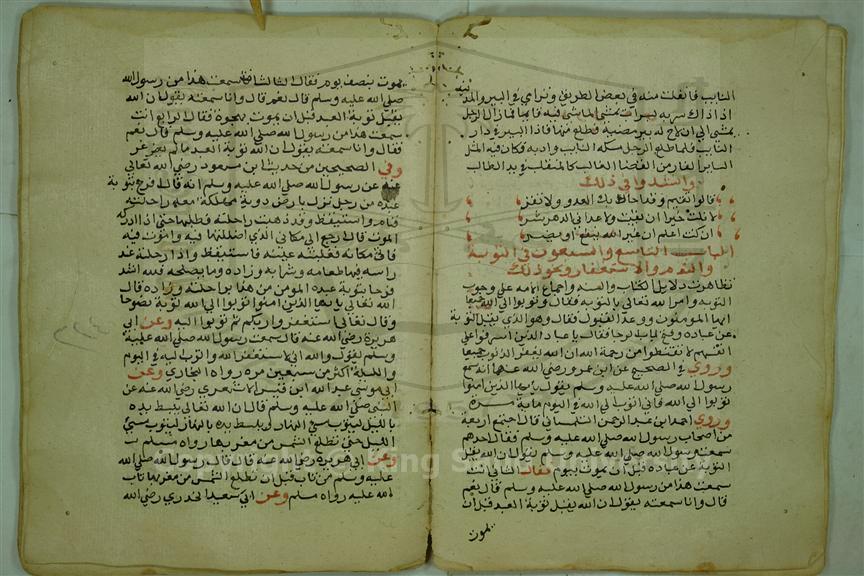 التايب فانفلت منه في بعض الطريق وتراي في البير والمد ينه
اذ اذاك سربه بسرات يمشي الماشي فيه قايما فما زال الرجل
يمشي الى ان لاح له بير مضية فطلع منها فاذا البير في دار
التايب فلما طلع الرجل مسكه التايب وادبه فكان فيه المثل
الساير الفار من القضا الغالب كالمتقلب في يد الطالب
وانشدوا في ذلك
قالوا تقيم وقد احاط بك العدو ولا تفر
لا نلت خيرا ان بقيت ولا عدا في الدهر شر
ان كنت اعلم ان غير الله ينفع او يضر
الباب التاسع والسبعون في التوبة
والندم والاستغفار ونحو ذلك
تظاهرت دلايل الكتاب والسنه واجماع الامه على وجوب
التوبه وامر الله تعالى بالتوبه فقال وتوبوا الى الله جميعا
ايها المومنون ووعد القبول فقال وهو الذي يقبل التوبة
عن عباده وفتح لباب لرجا فقال يا عباد الذين اسرفوا على
انفسهم لا تقنطوا من رحمة الله ان الله يغفر الذنوب جميعا
وروي في الصحيح عن ابن عمر رضي الله عنهما انه سمع
رسول الله صلى الله عليه وسلم يقول يايها الذين امنوا
توبوا الى الله فاني اتوب الى الله في اليوم ماية مرة
وروي احمد ابن عبد الرحمن السلماني قال اجتمع اربعة
من اصحاب رسول الله صلى الله عليه وسلم فقال احدهم
سمعت رسول الله صلى الله عليه وسلم يقول ان الله يقبل
التوبة عن عباده قبل ان يموت بيوم فقال الثاني انت
سمعت هذا من رسول الله صلى الله عليه وسلم قال نعم
قال وانا سمعته يقول ان الله يقبل توبة العبد قبل ان
يموت
يموت بنصف يوم فقال الثالث انت سمعت هذا من رسول الله
صلى الله عليه وسلم قال نعم قال وانا سمعته يقول ان الله
يقبل توبة العبد قبل ان يموت بضحوة فقال الرابع انت
سمعت هذا من رسول الله صلى الله عليه وسلم قال نعم
فقال وانا سمعته يقول ان الله يقبل توبة العبد مالم يغرغر
وفي الصحيحين من حديث ابن مسعود رضي الله تعالى
عنه عن رسول الله صلى الله عليه وسلم انه قال لله افرح بتوبة
عبده من رجل نزل بارض دوية مهلكة معه راحلته
فنام واستيقظ وقد ذهبت راحلته فطلبها حتى اذا ادركه
الموت قال ارجع الى مكاني الذي اضللتها فيه واموت فيه
فاتى مكانه فغلبته عينه فاستيقظ واذا راحلته عند
راسه فيها طعامه وشرابه وزاده وما يصلحه فلله اشد
فرحا بتوبة عبده المومن من هذا براحلته وزاده قال
الله تعالى يايها الذين امنوا توبوا الى الله توبة نصوحا
وقال تعالى استغفروا ربكم ثم توبوا اليه وعن ابي
هريرة رضي الله عنه قال سمعت رسول الله صلى الله عليه
وسلم يقول والله اني لاستغفر الله واتوب اليه في اليوم
والليلة اكثر من سبعين مرة رواه البخاري وعن
ابي موسى عبد الله ابن قيس الاشعري رضي الله عنه عن
النبي صلى الله عليه وسلم قال ان الله تعالى يبسط يده
بالليل ليتوب مسي النهار ويبسط يده بالنهار ليتوب مسي
الليل حتى تطلع الشمس من مغربها رواه مسلم
وعن ابي هريرة رضي الله عنه قال قال رسول الله صلى الله
عليه وسلم من تاب قبل ان تطلع الشمس من مغربها تاب
الله عليه رواه مسلم وعن ابي سعيد الخدري رضي الله